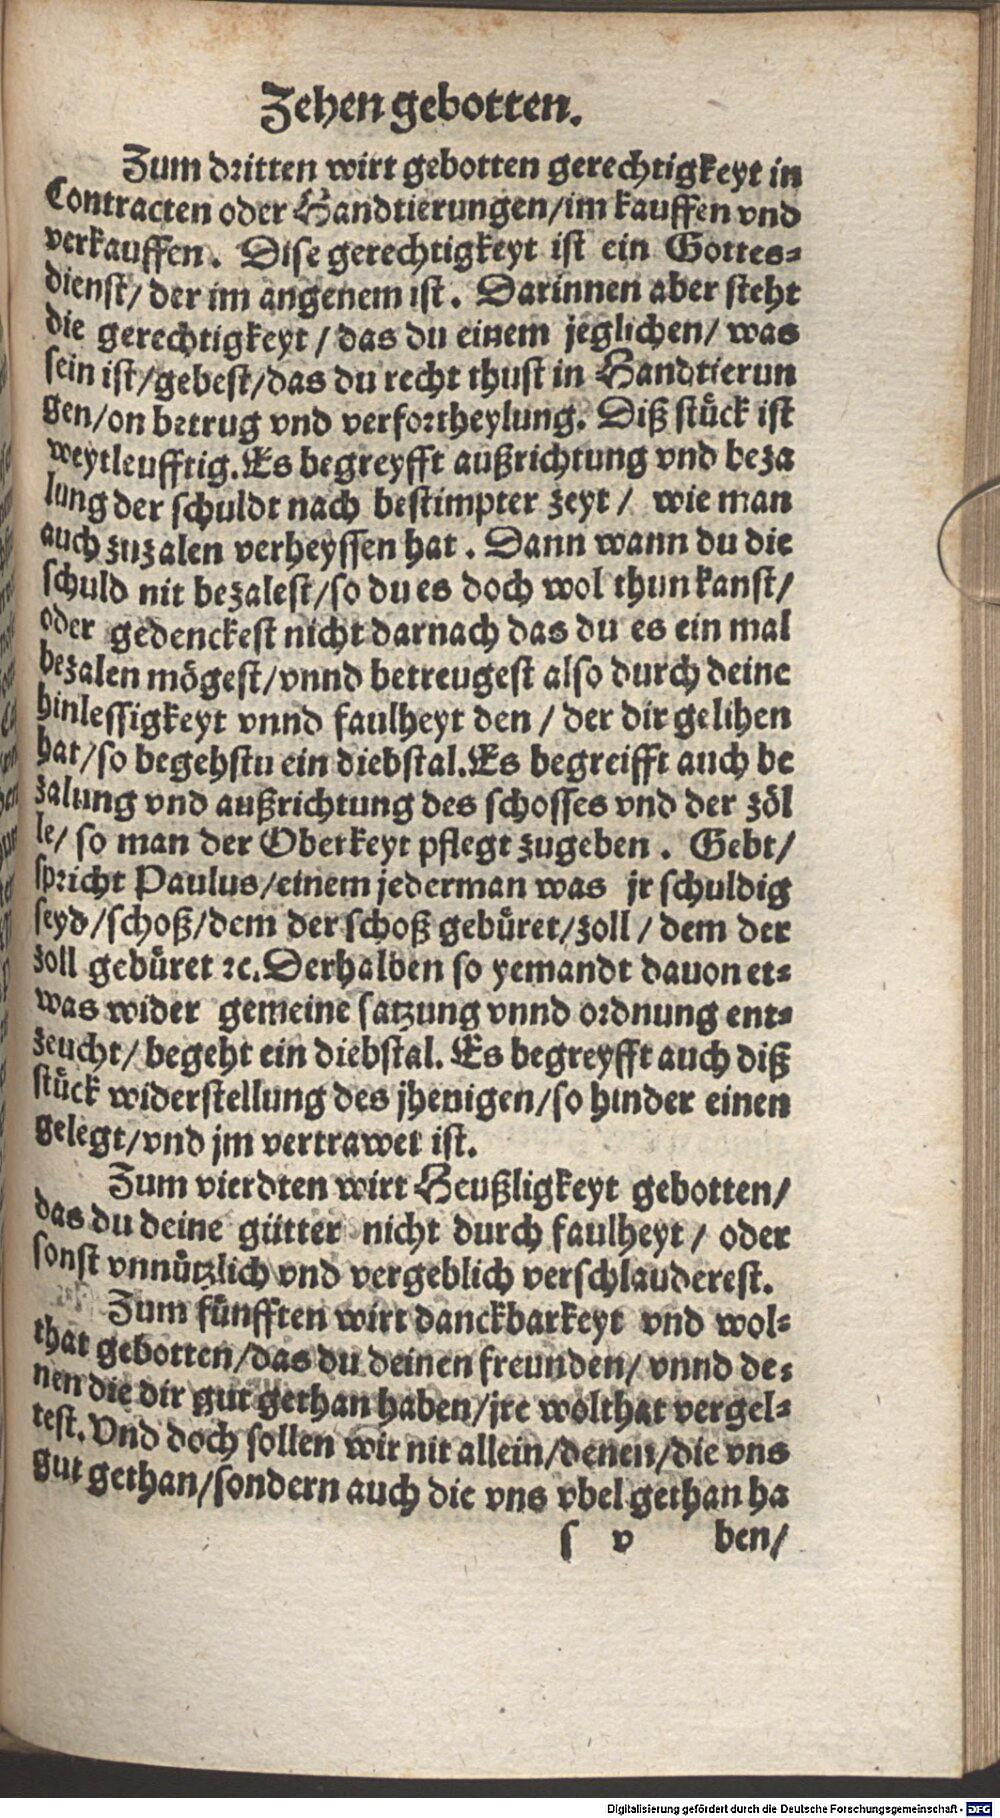 Zehen gebotten.
Zum dritten wirt gebotten gerechtigkeyt in
Contracten oder Handtierungen/im kauffen vnd
verkauffen. Dise gerechtigkeyt ist ein Gottes⸗
dienst/ der im angenem ist. Darinnen aber steht
die gerechtigkeyt / das du einem jeglichen/ was
sein ist/gebest/das du recht thust in Handtierun
gen/on betrug vnd verfortheylung. Diß stuͤck ist
weytleufftig. Es begreyfft außrichtung vnd beza
lung der schuldt nach bestimpter zeyt / wie man
auch zuzalen verheyssen hat. Dann wann du die
schuld nit bezalest/so du es doch wol thun kanst/
oder gedenckest nicht darnach das du es ein mal
bezalen moͤgest/vnnd betreugest also durch deine
hinlessigkeyt vnnd faulheyt den / der dir gelihen
hat/so begehstu ein diebstal. Es begreifft auch be
zalung vnd außrichtung des schosses vnd der zoͤl
le/ so man der Oberkeyt pflegt zugeben. Gebt/
spricht Paulus/einem jederman was jr schuldig
seyd/schoß/dem der schoß gebuͤret/zoll / dem der
zoll gebuͤret ꝛc. Derhalben so yemandt dauon et⸗
was wider gemeine satzung vnnd ordnung ent⸗
zeucht/ begeht ein diebstal. Es begreyfft auch diß
stuͤck widerstellung des jhenigen/so hinder einen
gelegt/vnd jm vertrawet ist.
Zum vierdten wirt Heußligkeyt gebotten/
das du deine guͤtter nicht durch faulheyt / oder
sonst vnnuͤtzlich vnd vergeblich verschlauderest.
Zum fuͤnfften wirt danckbarkeyt vnd wol⸗
that gebotten/das du deinen freunden/ vnnd de⸗
nen die dir gut gethan haben/jre wolthat vergel⸗
test. Vnd doch sollen wir nit allein/denen/die vns
gut gethan/sondern auch die vns vbel gethan ha
s v ben/
Digitalisierung gefördert durch die Deutsche Forschungsgemeinschaft - DFG